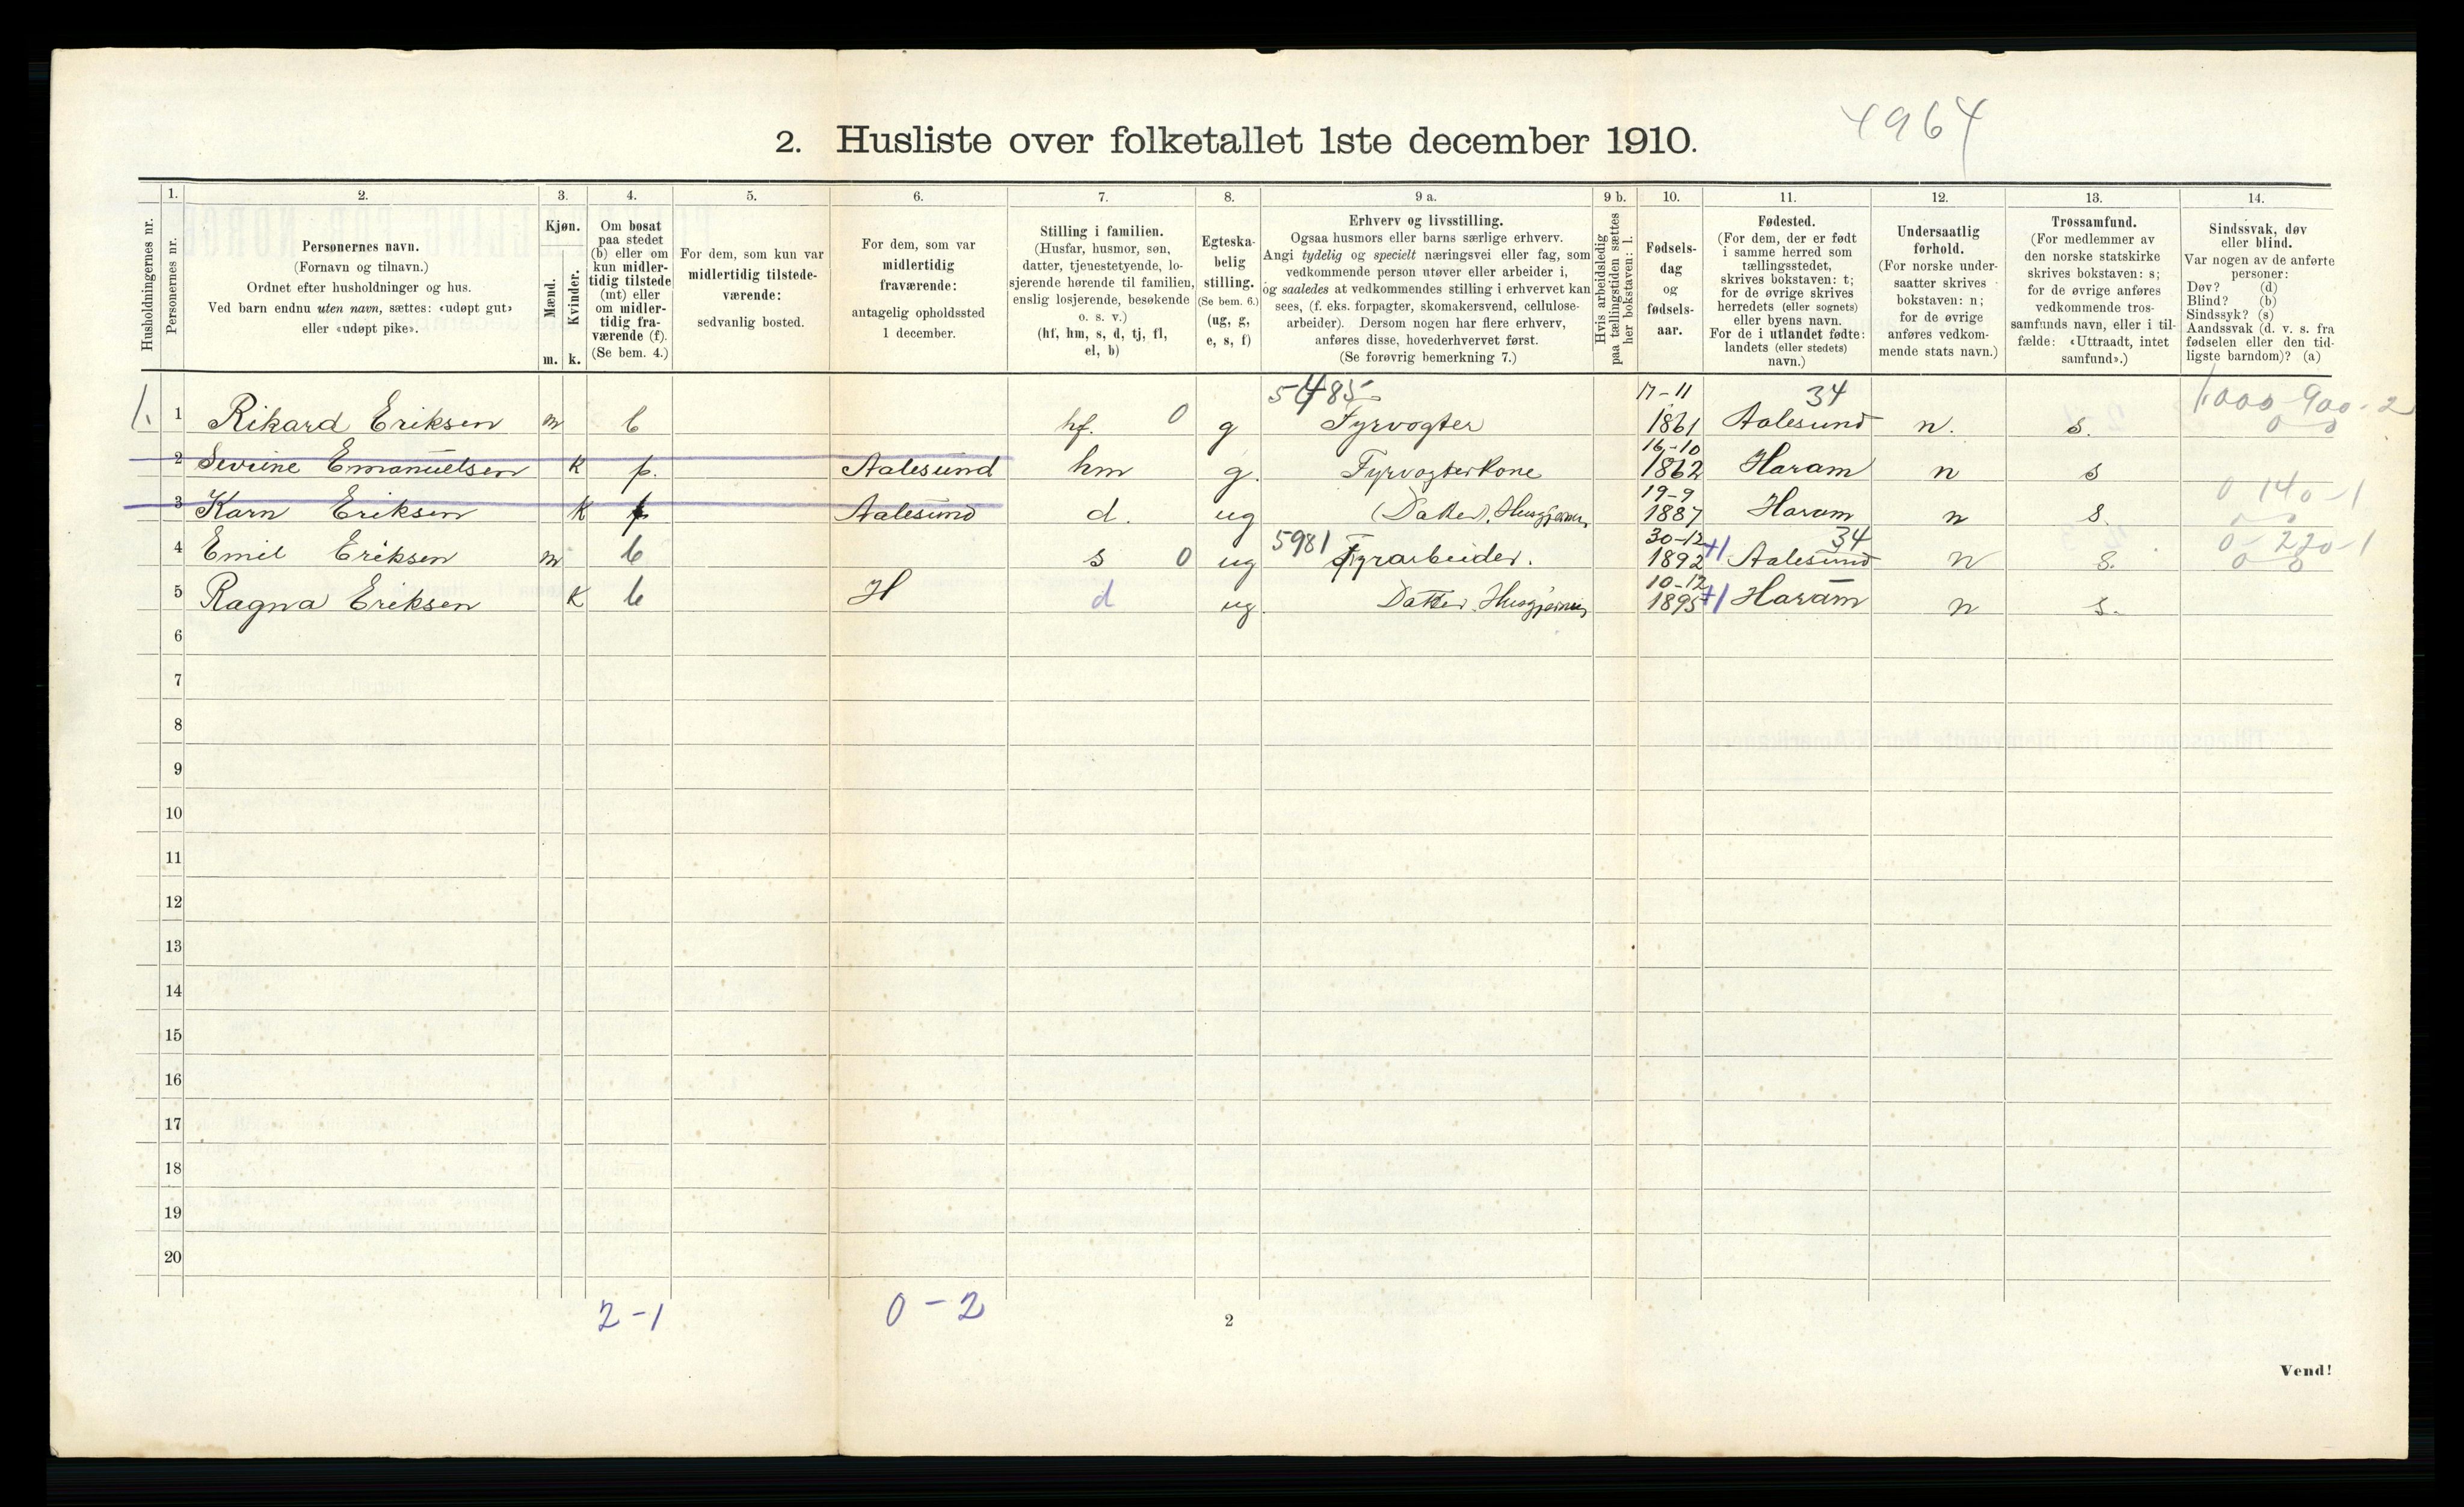 4964
2. Husliste over folketallet 1ste december 1910.
Husholdningernes nr.
1. Personernes nr.
2.
Personernes navn.
(Fornavn og tilnavn.)
Ordnet efter husholdninger og hus.
Ved barn endnu uten navn, sættes: «udøpt gut»
eller «udøpt pike».
3.
Kjøn.
Mænd. Kvinder.
m. k.
4.
Om bosat
paa stedet
(b) eller om
kun midler-
tidig tilstede
(mt) eller
om midler-
tidig fra-
værende (f).
(Se bem. 4.)
5.
For dem, som kun var
midlertidig tilstede-
værende:
sedvanlig bosted.
6.
For dem, som var
midlertidig
fraværende:
antagelig opholdssted
1 december.
7.
Stilling i familien.
(Husfar, husmor, søn,
datter, tjenestetyende, lo-
sjerende hørende til familien,
enslig losjerende, besøkende
o. s. v.)
(hf, hm, s, d, tj, fl,
el, b)
8.
Egteska-
belig
stilling.
(Se bem. 6.)
(ug, g,
e, s, f)
9 a.
Erhverv og livsstilling.
Ogsaa husmors eller barns særlige erhverv.
Angi tydelig og specielt næringsvei eller fag, som
vedkommende person utøver eller arbeider i,
og saaledes at vedkommendes stilling i erhvervet kan
sees, (f. eks. forpagter, skomakersvend, cellulose-
arbeider). Dersom nogen har flere erhverv,
anføres disse, hovederhvervet først.
(Se forøvrig bemerkning 7.)
9 b.
Hvis arbeidsledig
paa tællingstiden sættes
her bokstaven: l.
10.
Fødsels-
dag
og
fødsels-
aar.
11.
Fødested.
(For dem, der er født
i samme herred som
tællingsstedet,
skrives bokstaven: t;
for de øvrige skrives
herredets (eller sognets)
eller byens navn.
For de i utlandet fødte:
landets (eller stedets)
navn.)
12.
Undersaatlig
forhold.
(For norske under-
saatter skrives
bokstaven: n;
for de øvrige
anføres vedkom-
mende stats navn.)
13.
Trossamfund.
(For medlemmer av
den norske statskirke
skrives bokstaven: s;
for de øvrige anføres
vedkommende tros-
samfunds navn, eller i til-
fælde: «Uttraadt, intet
samfund».)
14.
Sindssvak, døv
eller blind.
Var nogen av de anførte
personer:
Døv? (d)
Blind? (b)
Sindssyk? (s)
Aandssvak (d. v. s. fra
fødselen eller den tid-
ligste barndom)? (a)
5485 17-11 34 1000-900-2
1. 1 Rikard Eriksen m b hf. 0 g Fyrvogter 1861 Aalesund n. s. 0 0
16-10
2 Sevrine Emanuelsen K f. Aalesund hm g. Fyrvogterkone 1862 Haram n s
19-9 0 140-1
3 Karn Eriksen K f Aalesund d. ug (Datter). Husgjerning 1887 Haram n s.
5981 30-12 34 0-220-1
4 Emil Eriksen m b s 0 ug Fyrarbeider. 1892 +1 Aalesund n s. 0 0
10-12
5 Ragna Eriksen K b H d ug. Datter. Husgjerning 1895 +1 Haram n s.
6
7
8
9
10
11
12
13
14
15
16
17
18
19
20
2-1 0-2
2
Vend!